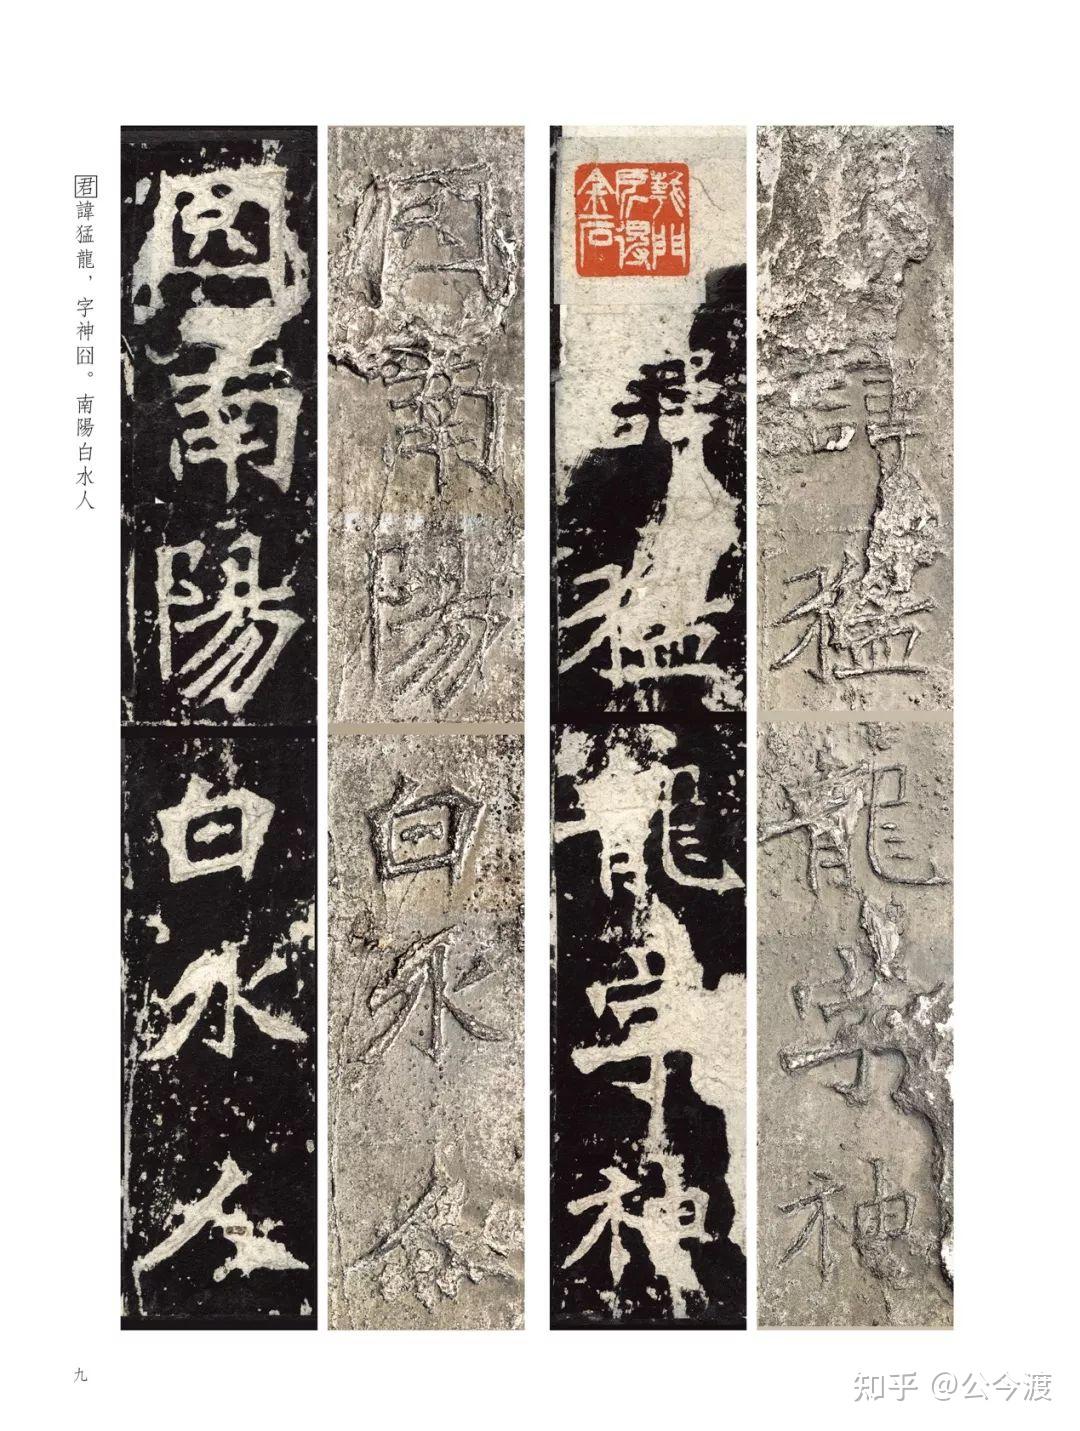 諱猛龍字神
諱猛龍字神
囧南陽白水人
囧南陽白水人
君諱猛龍，字神囧。南陽白水人
九
知乎 @公今渡